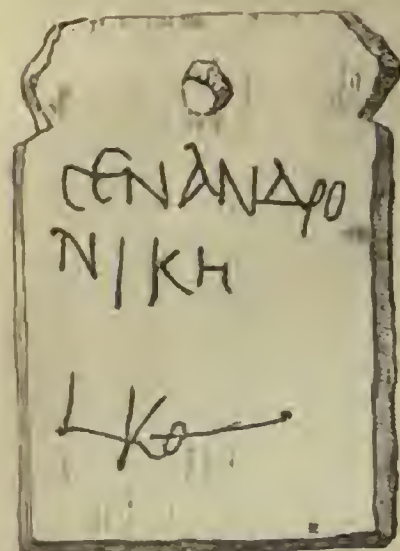 ϹΕΝΑΝΔΡΟ
ΝΙΚΗ
LΚΘ